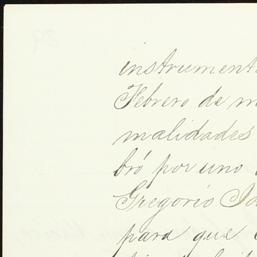 instrument
Febrero de m
malidades
bró por uno
Gregorio
para que